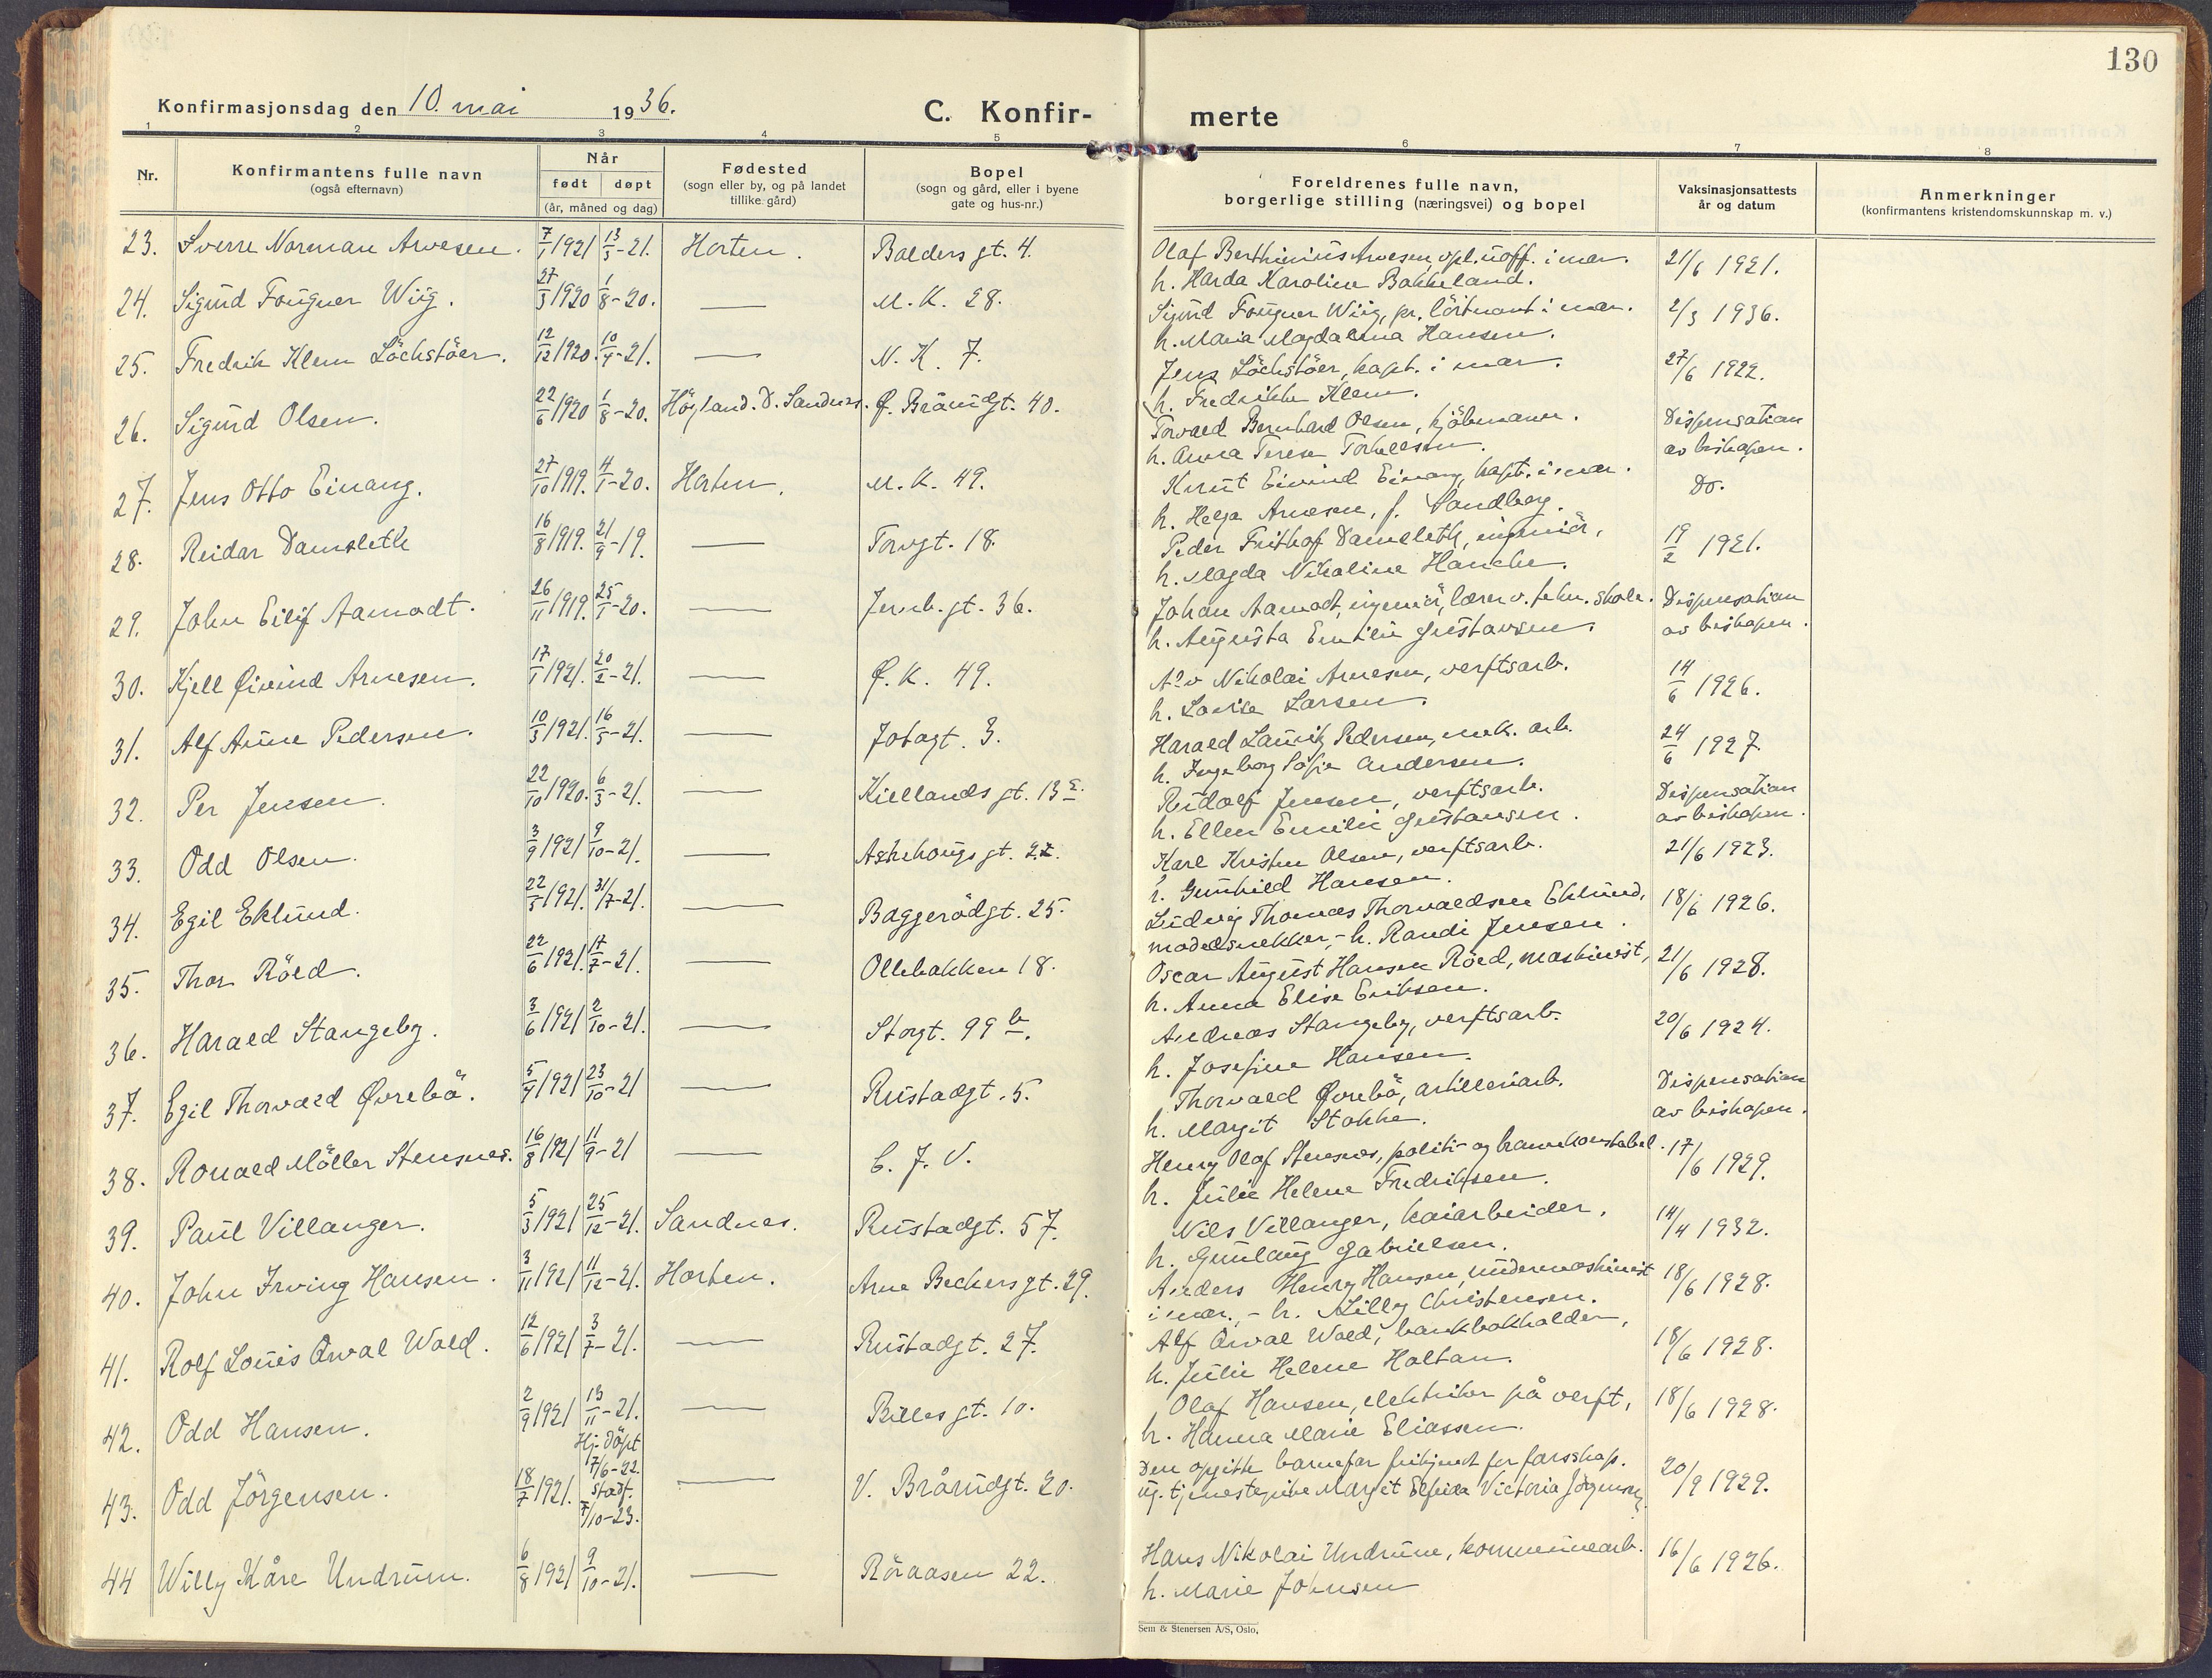 130
Konfirmasjonsdag den 10. mai 1936.
C. Konfir-
merte
1 2 3 4 5 6 7 8
Nr.
Konfirmantens fulle navn
(også efternavn)
Når
født døpt
(år, måned og dag)
Fødested
(sogn eller by, og på landet
tillike gård)
Bopel
(sogn og gård, eller i byene
gate og hus-nr.)
Foreldrenes fulle navn,
borgerlige stilling (næringsvei) og bopel
Vaksinasjonsattests
år og datum
Anmerkninger
(konfirmantens kristendomskunnskap m. v.)
23. Sverre Norman Arvesen. 7/1 1921 13/3-21. Horten. Balders gt. 4. Olaf Berthinius Arvesen, opl. uoff. i mar. 21/6 1921.
h. Harda Karoline Bakkeland.
24. Sigurd Fougner Wiig. 27/3 1920 1/8-20. — M. K. 28. Sigurd Fougner Wiig, pr. löitnant i mar. 2/3 1936.
h. Maria Magdalena Hansen.
25. Fredrik Klem Löchstöer. 12/12 1920. 10/4-21. — N. K. 7. Jens Löchstöer, kapt. i mar. 27/6 1922.
h. Fredrikke Klem.
26. Sigurd Olsen. 22/6 1920 1/8-20. Høyland. D. Sandnes. Ø. Braarudgt. 40. Torvald Bernhard Olsen, kjöbmann. Dispensation
h. Anna Terese Torkellsen. av biskopen.
27. Jens Otto Einang. 27/10 1919. 4/1-20. Horten. M. K. 49. Knut Eivind Einang, kapt. i mar. Do.
h. Helga Arnesen, f. Sandberg.
28. Reidar Damsleth 16/8 1919. 21/9-19. — Torvgt. 18. Peder Frithof Damsleth, ingeniör, 19/2 1921.
h. Magda Nikoline Hanche.
29. John Eilif Aamodt. 26/11 1919. 25/1-20. — Jernb. gt. 36. Johan Aamodt, ingeniör, lærer v. tekn. skole. Dispensation
h. Augusta Emilie Gustavsen. av biskopen.
30. Kjell Øivind Arnesen. 17/1 1921. 20/2-21. — Ø. K. 49. Nikolai Arnesen, verftsarb. 14/6 1926.
h. Lovise Larsen.
31. Alf Arne Pedersen. 10/3 1921. 16/5-21. — Jotagt. 3. Harald Lauritz Pedersen, mek. arb. 24/6 1927.
h. Ingeborg Sofie Andersen.
32. Per Jensen. 22/10 1920. 6/3-21. — Kiellands gt. 13 Rudolf Jensen, verftsarb. Dispensation
h. Ellen Emilie Gustavsen. av biskopen.
33. Odd Olsen. 3/9 1921 9/10-21. — Askehougs gt. 22. Karl Kristen Olsen, verftsarb. 21/6 1923.
h. Gunhild Hansen.
34. Egil Eklund. 22/5 1921. 31/7-21. — Baggerødgt. 25. Ludvig Thomas Thorvaldsen Eklund, 18/6 1926.
modelsnekker, - h. Randi Jensen.
35. Thor Röed. 22/6 1921. 17/7-21. — Ollebakken 18. Oscar August Hansen Röed, maskinist, 21/6 1928.
h. Anna Elise Eriksen.
36. Harald Stangeby. 3/6 1921 2/10-21. — Storgt. 99 b. Andreas Stangeby, verftsarb. 20/6 1924.
h. Josefine Hansen.
37. Egil Thorvald Øvrebö. 5/4 1921 23/10-21 — Rustadgt. 5. Thorvald Øvrebö, artilleriarb. Dispensation
h. Margit Stokke. av biskopen.
38. Ronald Möller Stensnes. 16/8 1921 11/9-21 — C. J. V. Henry Olaf Stensnes, politi- og brannkonstabel. 17/6 1929.
h. Julie Helene Fredriksen.
39. Paul Villanger. 5/3 1921 25/12-21. Sandnes. Rustadgt. 57. Nils Villanger, kaiarbeider, 14/4 1932.
h. Gunlaug Gabrielsen.
40. John Irving Hansen. 3/11 1921 11/12-21. Horten. Arne Beckers gt. 29. Anders Henry Hansen, undermaskinist 18/6 1928.
i mar., - h. Lilly Christensen.
41. Rolf Louis Orval Wold. 12/6 1921 3/7-21. — Rustadgt. 27. Alf Orval Wold, bankbokholder, 18/6 1928.
h. Julie Helene Holtan.
42. Odd Hansen. 2/9 1921 13/11-21. — Billes gt. 10. Olaf Hansen, elektriker på verft, 18/6 1928.
h. Hanna Marie Eliassen.
43. Odd Jörgensen. 18/7 1921. Hj. döpt 17/6-22. stadf. 7/10-23. — V. Brårudgt. 20. Den opgitte barnefar frikjent for farsskap. 20/9 1929.
ug. tjenestepike Margit Elfrida Victoria Jörgensen.
44 Willy Kåre Undrum. 6/8 1921 9/10-21. — Röraasen 22. Hans Nikolai Undrum, kommunearb. 16/6 1926.
h. Marie Johnsen
Sem & Stenersen A/S, Oslo.